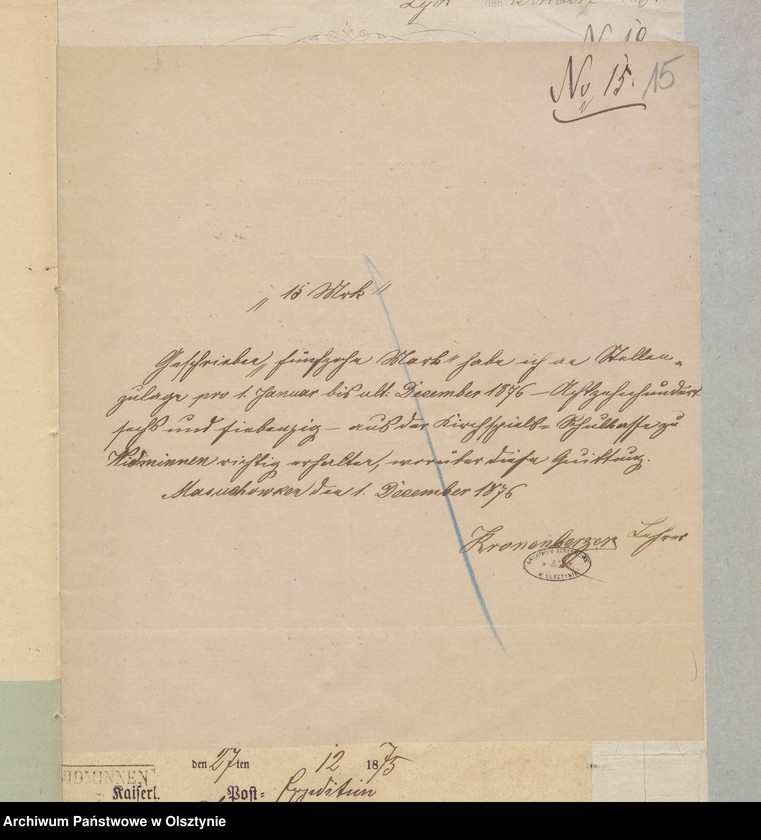 Lyk
No 18
No 15. 15
„ 15 Mrk "
Geschrieben „fünfzehn Mark" habe ich an Stellen-
zulage pro 1. Januar bis ult: Dezember 1876 – Achtzehnhundert
sechs und siebenzig – aus der Kirchspiels-Schulkasse zu
Widminnen richtig erhalten, worüber diese Quittung.
Masuchowken den 1. Dezember 1876
Kronenberger Lehrer
ARCHIWUM PAŃSTWOWE
W OLSZTYNIE
den 27ten 12 1875
WIDMINNEN
Kaiserl. Post-Expedition
Archiwum Państwowe w Olsztynie